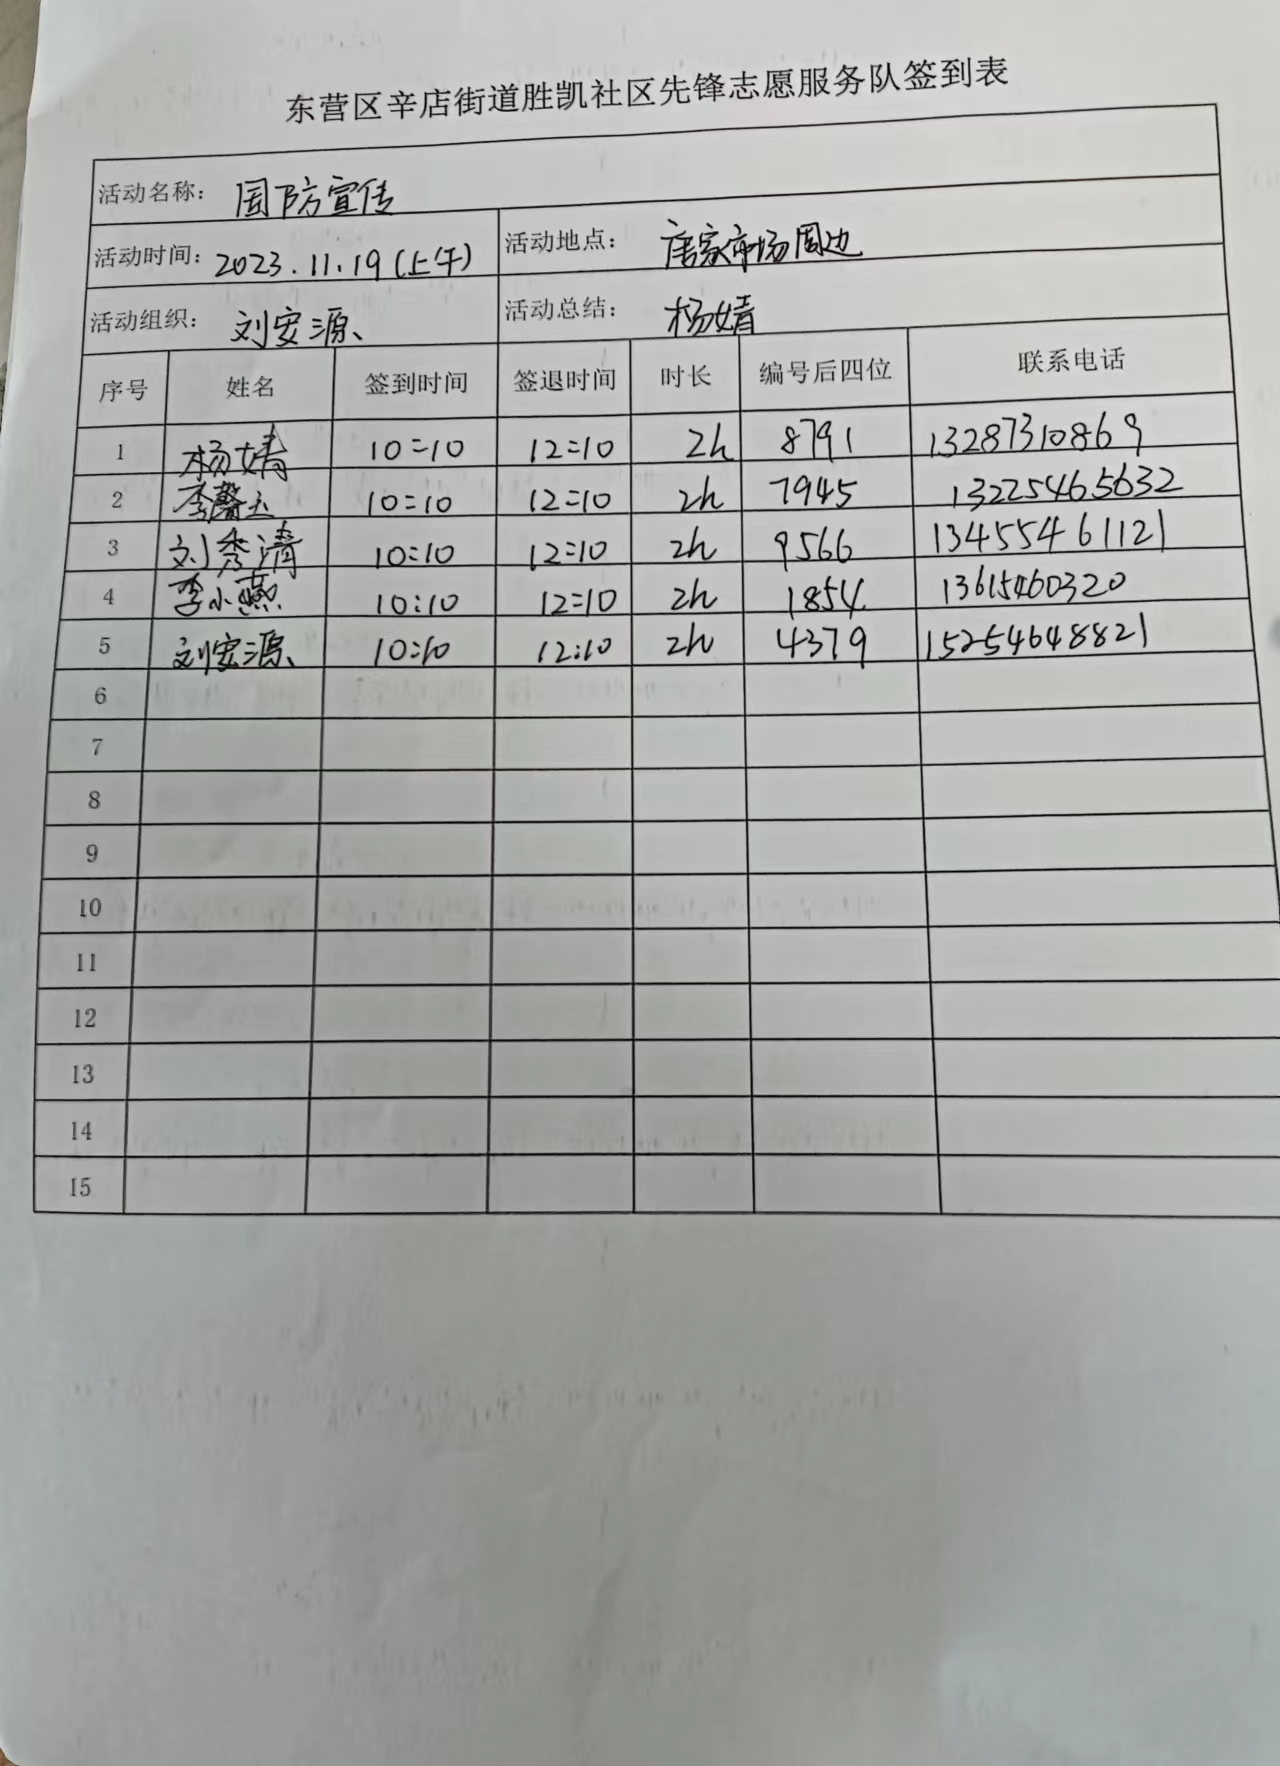 东营区辛店街道胜凯社区先锋志愿服务队签到表
活动名称： 国防宣传
活动时间： 2023.11.19(上午) 活动地点： 唐家市场周边
活动组织： 刘安源 活动总结： 杨婧
序号 姓名 签到时间 签退时间 时长 编号后四位 联系电话
1 杨婧 10:10 12:10 2h 8791 13287310869
2 李馨玉 10:10 12:10 2h 7945 13225465632
3 刘秀清 10:10 12:10 2h 9566 13455461121
4 李小燕 10:10 12:10 2h 1854 13615460320
5 刘安源 10:10 12:10 2h 4379 15254648821
6
7
8
9
10
11
12
13
14
15